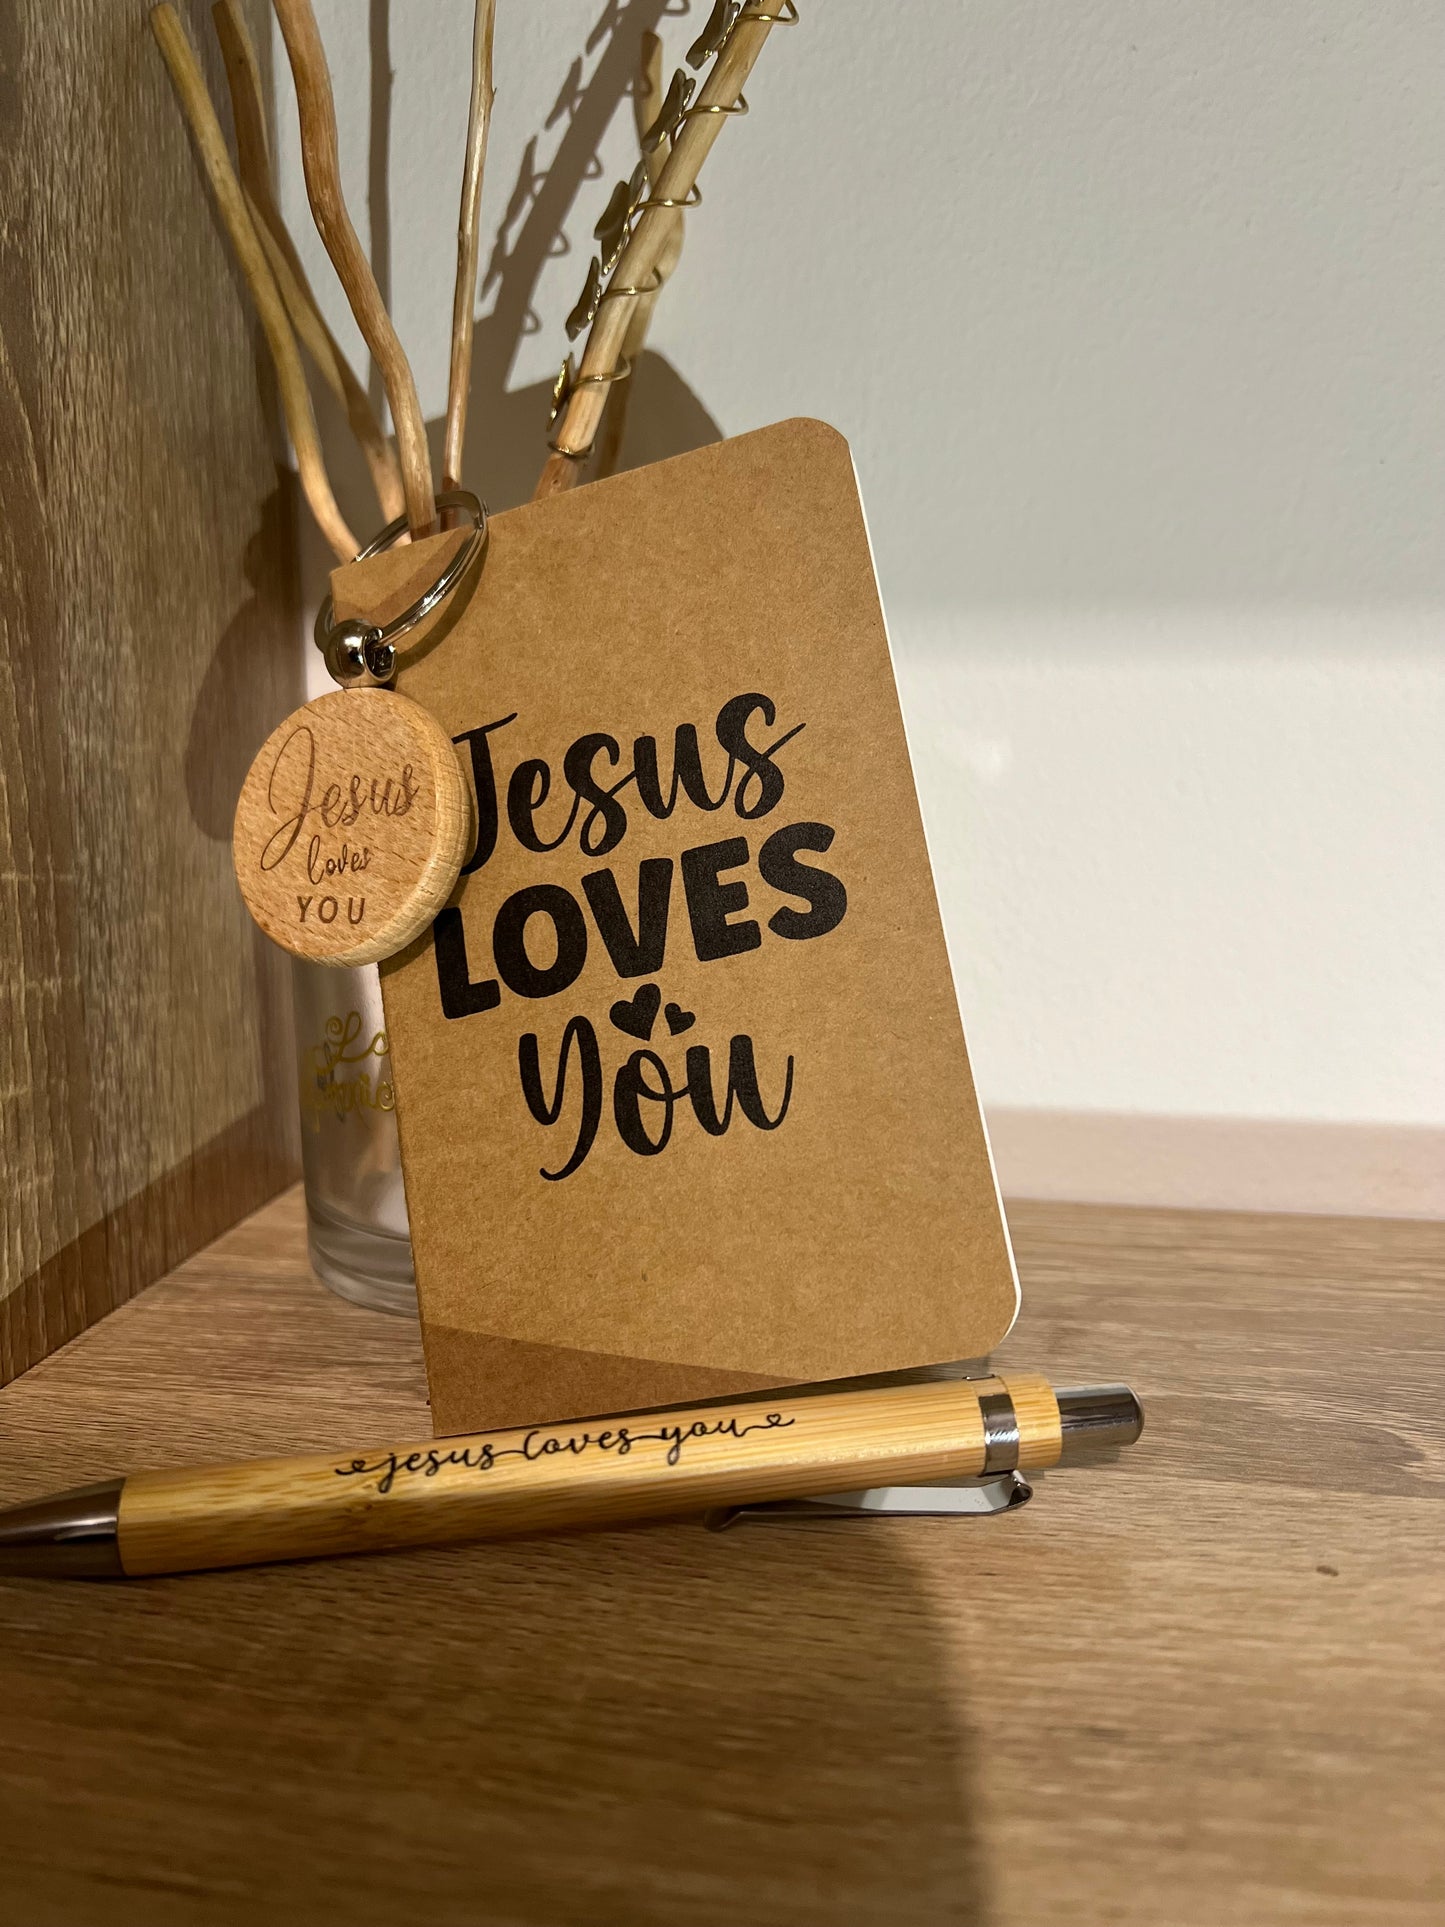 Jesus
loves
YOU
Jesus
LOVES
you
jesus loves you